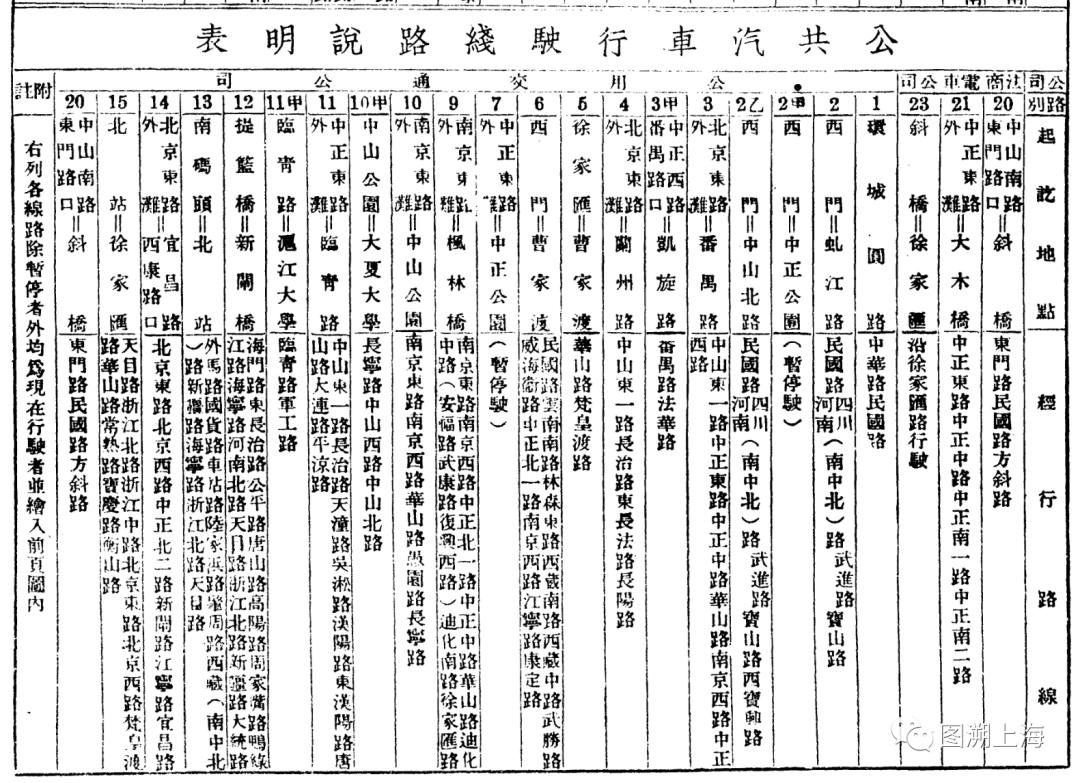 公共汽車行駛綫路說明表
公司
法商電車公司
公用交通公司
附註
路別
起訖地點
經行路線
20
中山南路
東門路口
=斜橋
東門路民國路方斜路
21
中正東路
外灘
=大木橋
中正東路中正中路中正南一路中正南二路
23
斜橋=徐家匯
沿徐家匯路行駛
1
環城圓路
中華路民國路
2
西門=虬江路
民國路四川河南(南中北)路武進路寶山路
2甲
西門=中正公園
(暫停駛)
2乙
西門=中山北路
民國路四川河南(南中北)路武進路寶山路西寶興路
3
北京東路
外灘
=番禺路
中山東一路中正東路中正中路華山路南京西路中正
西路
3甲
中正西路
番禺路口
=凱旋路
番禺路法華路
4
北京東路
外灘
=蘭州路
中山東一路長治路東長法路長陽路
5
徐家匯=曹家渡
華山路梵皇渡路
6
西門=曹家渡
民國路雲南南路林森東路西藏南路西藏中路武勝路
威海衛路中正北一路南京西路江寧路康定路
7
中正東路
外灘
=中正公園
(暫停駛)
9
南京東路
外灘
=楓林橋
南京東路南京西路中正北一路中正中路華山路迪化
中路(安福路武康路復興西路)迪化南路徐家匯路
10
南京東路
外灘
=中山公園
南京東路南京西路華山路愚園路長寧路
10甲
中山公園=大夏大學
長寧路中山西路中山北路
11
中正東路
外灘
=臨青路
中山東一路長治路天潼路吳淞路漢陽路東漢陽路唐
山路大連路平涼路
11甲
臨青路=滬江大學
臨青路軍工路
12
提籃橋=新閘橋
海門路東長治路公平路唐山路高陽路周家嘴路鴨綠
江路海寧路河南北路天目路浙江北路新疆路大統路
13
南碼頭=北站
外馬路國貨路車站路陸家浜路肇周路西藏(南中北
)路新疆路海寧路浙江北路天目路
14
北京東路
外灘
=
宜昌路
西康路口
北京東路北京西路中正北二路新閘路江寧路宜昌路
15
北站=徐家匯
天目路浙江北路浙江中路北京東路北京西路梵皇渡
路華山路常熟路寶慶路衡山路
20
中山南路
東門路口
=斜橋
東門路民國路方斜路
右列各線路除暫停者外均為現在行駛者並繪入前頁圖內
图溯上海